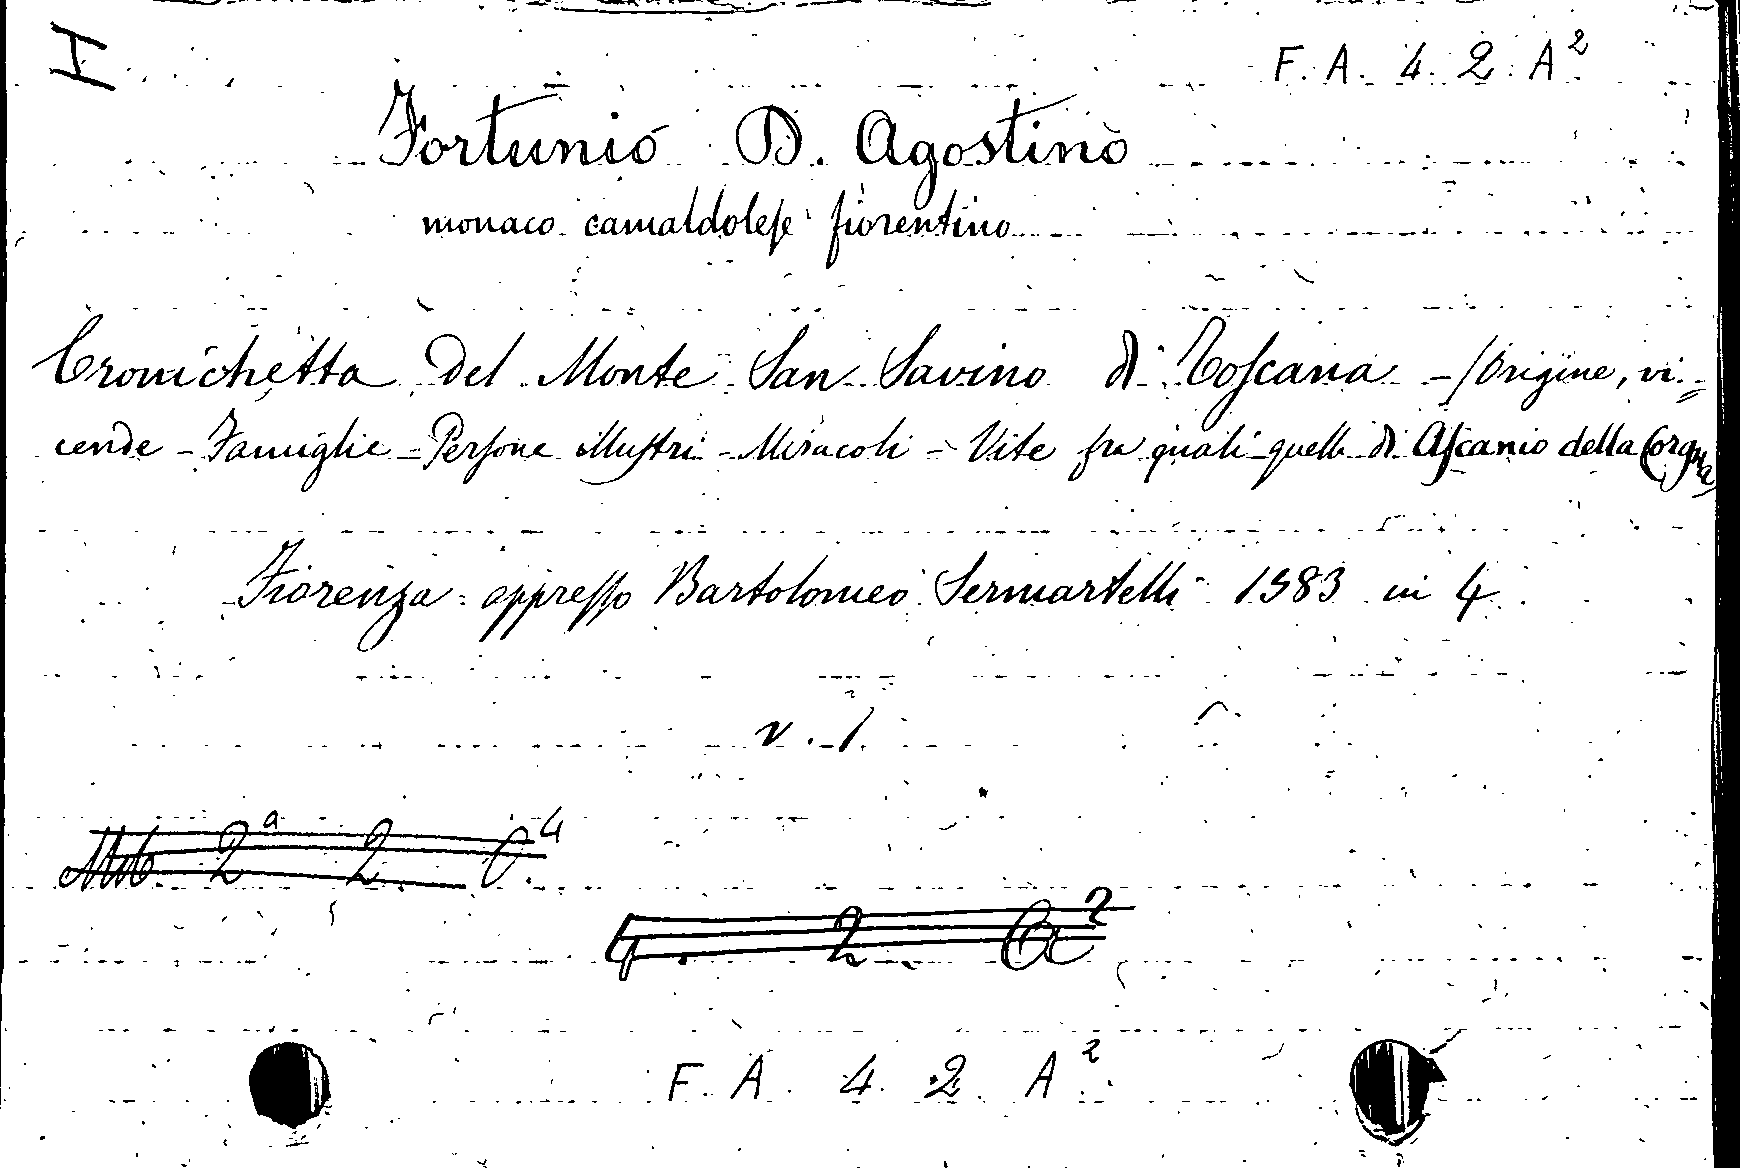 I
F. A. 4. 2. A²
Fortunio D. Agostino
monaco camaldolese fiorentino
Cronichetta del Monte San Savino di Toscana - (Origine, vi=
cende - Famiglie - Persone illustri - Miracoli - Vite fra quali quella di Ascanio della Corgna)
Fiorenza appresso Bartolomeo Sermartelli 1583 in 4
v. 1.
2ª 2. C⁴
4. 2. A²
F. A. 4. 2. A²